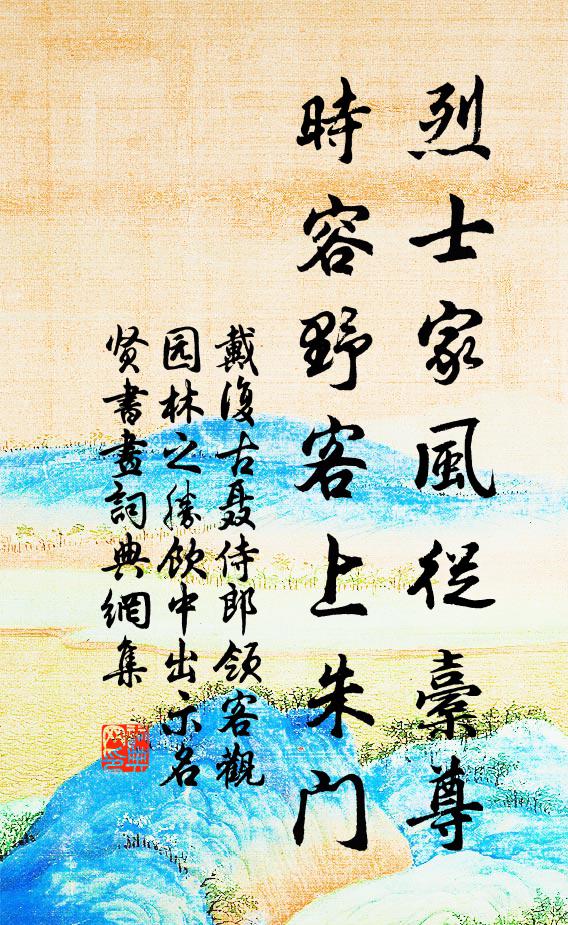 烈士家風從橐尊
時容野客上朱門
戴復古聂侍郎领客觀
园林之勝飲中出示名
贤書畫詞典網集